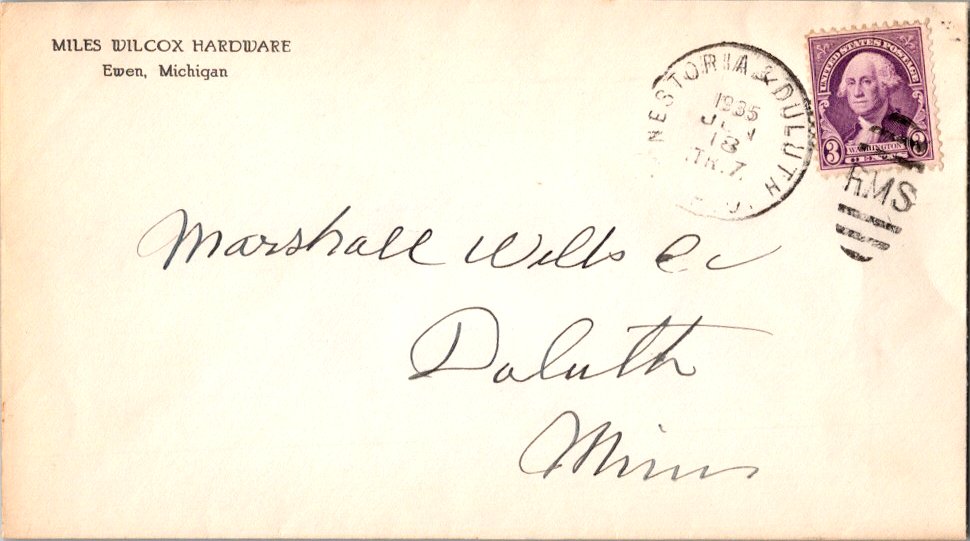 MILES WILCOX HARDWARE
Ewen, Michigan
NESTORIA & DULUTH
1935
JUN
18
TR.7.
UNITED STATES POSTAGE
WASHINGTON
3
RMS
Marshall Wells Co
Duluth
Minn